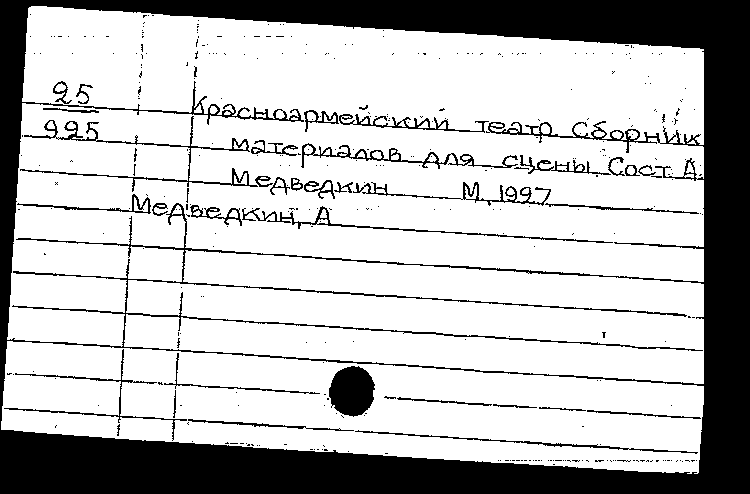 25
925
Красноармейский театр Сборник
материалов для сцены. Сост. А.
Медведкин М., 1997
Медведкин, А